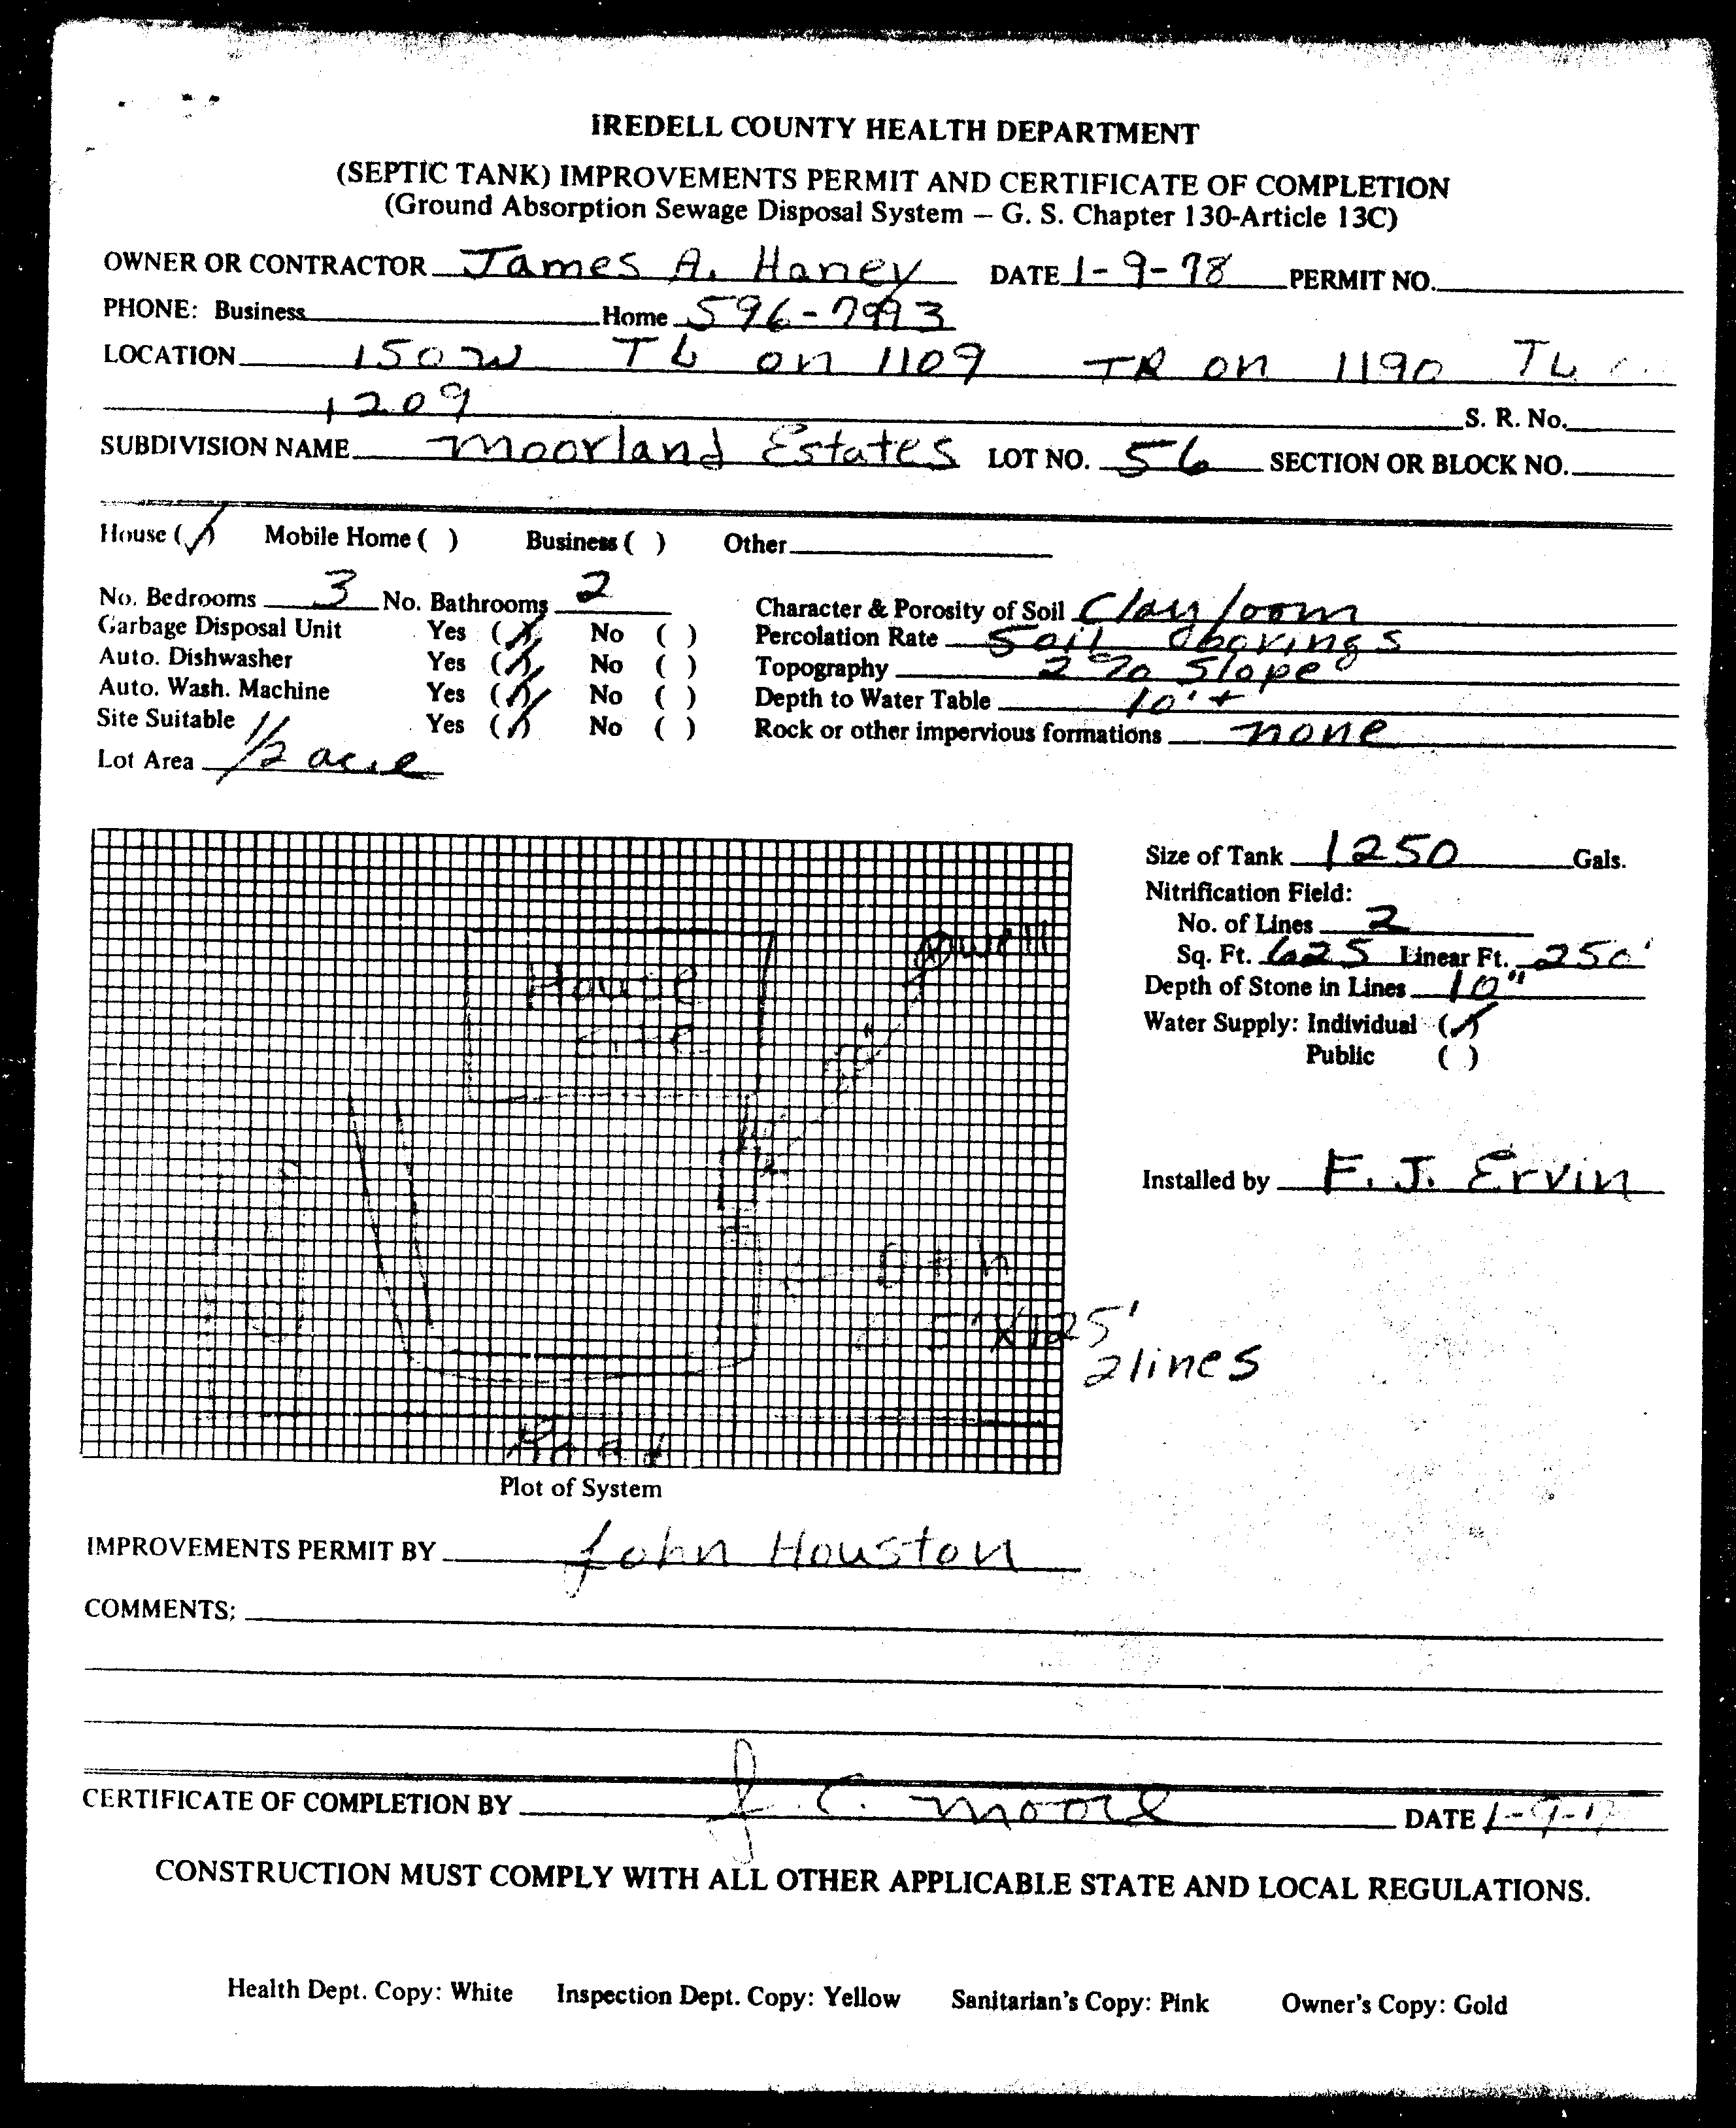 IREDELL COUNTY HEALTH DEPARTMENT
(SEPTIC TANK) IMPROVEMENTS PERMIT AND CERTIFICATE OF COMPLETION
(Ground Absorption Sewage Disposal System – G. S. Chapter 130-Article 13C)
OWNER OR CONTRACTOR James A. Haney DATE 1-9-78 PERMIT NO.
PHONE: Business Home 596-7993
LOCATION 150 W TL on 1109 TR on 1190 TL
1209 S. R. No.
SUBDIVISION NAME Moorland Estates LOT NO. 56 SECTION OR BLOCK NO.
House (✓) Mobile Home ( ) Business ( ) Other
No. Bedrooms 3 No. Bathrooms 2 Character & Porosity of Soil Clay loom
Garbage Disposal Unit Yes (✓) No ( ) Percolation Rate Soil
Auto. Dishwasher Yes (✓) No ( ) Topography 2% Slope
Auto. Wash. Machine Yes (✓) No ( ) Depth to Water Table 10'+
Site Suitable Yes (✓) No ( ) Rock or other impervious formations none
Lot Area 1/2 acre
Size of Tank 1250 Gals.
Nitrification Field:
No. of Lines 2
Sq. Ft. 625 Linear Ft. 250'
Depth of Stone in Lines 10"
Water Supply: Individual (✓)
Public ( )
well
House
Installed by F. J. Ervin
X125'
2 lines
Road
Plot of System
IMPROVEMENTS PERMIT BY John Houston
COMMENTS:
CERTIFICATE OF COMPLETION BY J. C. Moore DATE 1-9-
CONSTRUCTION MUST COMPLY WITH ALL OTHER APPLICABLE STATE AND LOCAL REGULATIONS.
Health Dept. Copy: White Inspection Dept. Copy: Yellow Sanitarian's Copy: Pink Owner's Copy: Gold